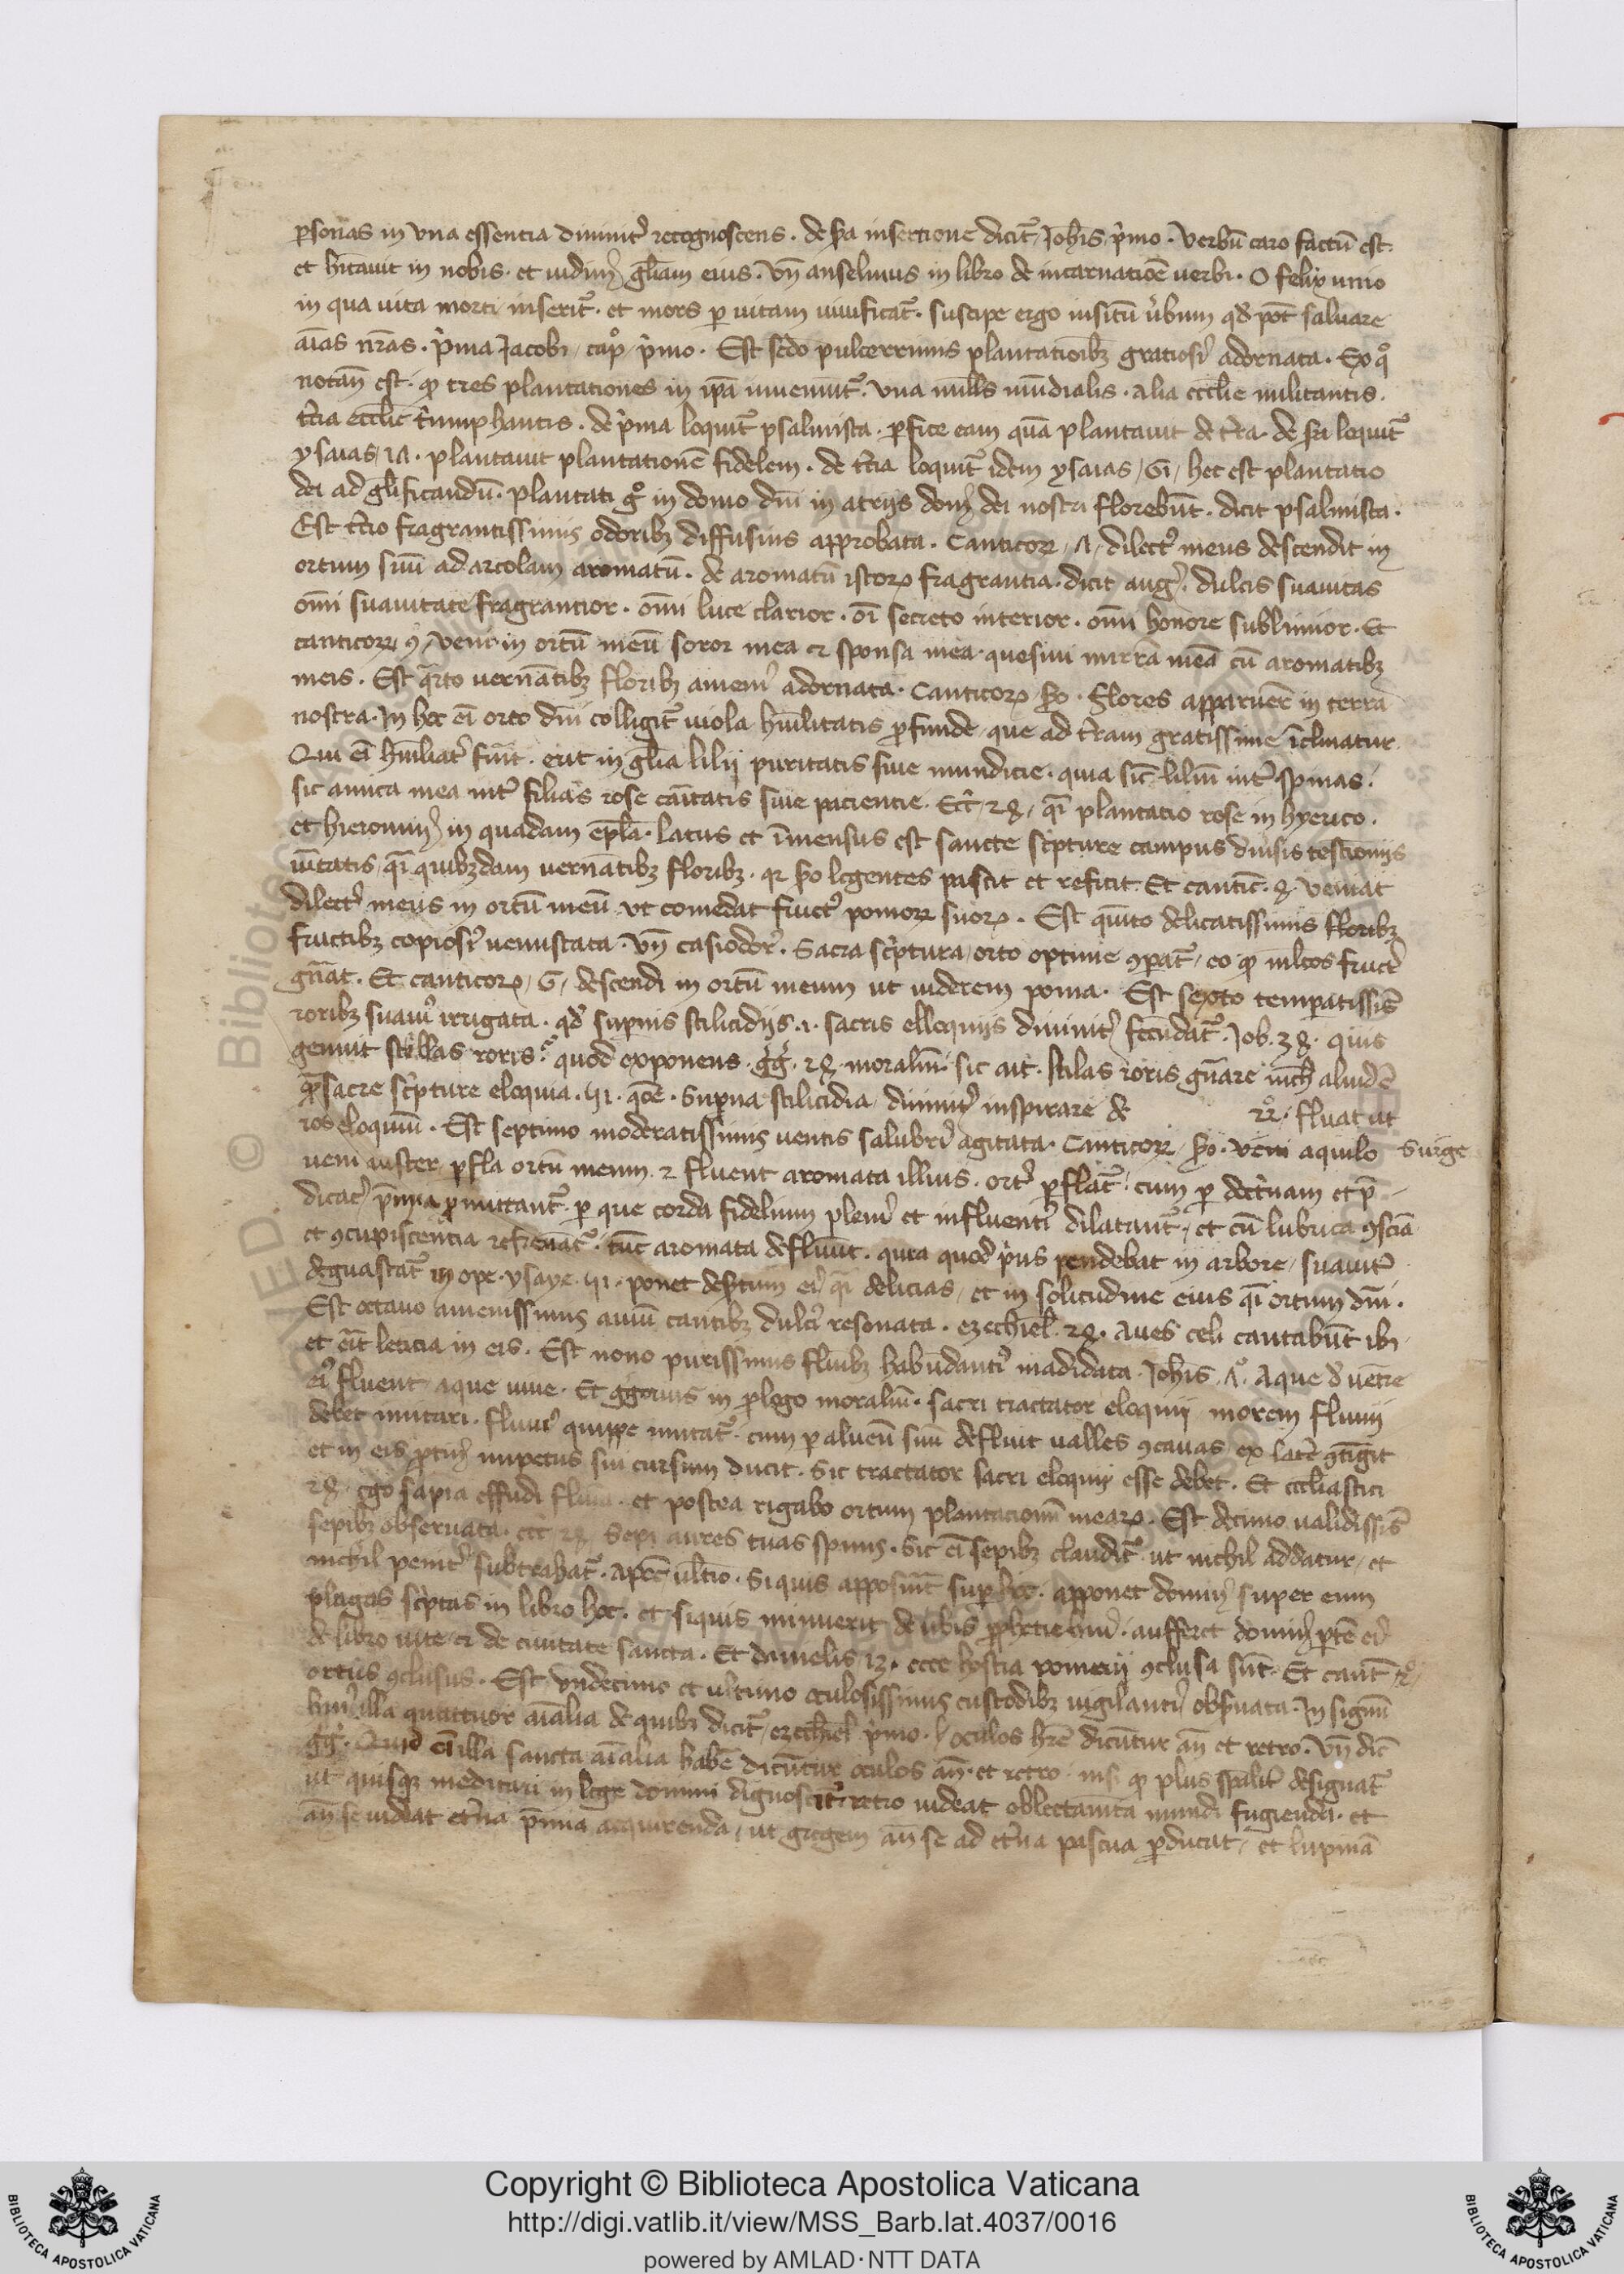 ꝑsonas in vna essentia diuinit᷑ recognoscens . de sc̃a insertione dicit᷑ Joh̃is p̾mo . Verbũ caro factũ est .
et hĩtauit in nobis . et uidim᷒ gl̃iam eius . Vñ anselmus in libro de incarnatiõe uerbi . O felix unio
in qua uita morti inserit᷑ . et mors ꝑ uitam uiuificat᷑ . suscipe ergo insitũ u̾bum qđ pot̃ saluare
ai̾as nr̃as . p̾ma Jacobi cap̊ p̾mo . Est sc̃do pulcerrimis plantationibꝫ gratiose adornata . Ex q̊
notañ est . ꝙ tres plantationes in ip̃a inueniũt᷑ . vna mũdialis . alia eccl̃ie militantis .
t̾cia eccl̃ie t̾iumphantis . de p̾ma loquit᷑ psalmista . ꝑfice eam quã plantauit det̾ra . de sc̃a loquit᷑
ysaias . plantauit plantationẽ fidelem . de t̾cia loquit᷑ idem ysaias , 61 , hec est plantatio
dei ad gl̃ificandũ . plantati g̊ in domo dñi in atrijs dom᷒ dei nostri florebũt . dicit psalmista .
Est t̾cio fragrantissimis odoribꝫ diffusius approbata . Canticoꝝ , dilect᷒ meus descendit in
ortum suũ ad areolam aromatũ . de aromatũ istoꝝ fragrantia . dicit aug᷒ . dulcis suauitas
om̃i suauitate fragrantior . om̃i luce clarior . oĩ secreto interior . om̃i honore sublimior . Et
canticoꝝ , veni in ortũ meũ soror mea ⁊ sponsa mea . messui mirrã meã cũ aromatibꝫ
meis . Est q̾rto uernãtibꝫ floribꝫ amene adornata . Canticoꝝ sc̃do . Flores apparuer̃ in terra
nostra . In hoc eĩ orto dñi colligit᷑ uiola hũilitatis ꝓfunde , que ad t̾ram gratissime ĩclinatur .
Qui eĩ hũiliat᷒ fuĩt . erit in gl̃ia lilij puritatis siue mundicie . quia sic̃ liliũ int̾ spinas .
sic amica mea int̾ filias rose caĩtatis siue pacientie . Ecc̃i , 24 , q̾i plantatio rose in hyerico .
et hieronim᷒ in quadam ep̃la . latus et ĩmensus est sancte sc̾pture campus diuisis testionijs
uĩtatis , q̾i quibꝫdam uernãtibꝫ floribꝫ . legentes pascit et reficit . Et cantic̃ . veniat
dilect᷒ meus in ortũ meũ vt comedat fruct᷒ pomoꝝ suoꝝ . Est quĩto delicatissimis floribꝫ
fructibꝫ copiose uenustata . Vñ casiodor᷒ . Sacra sc̾ptura , orto optime ꝯꝑat᷑ , eo ꝙ ml̃tos fruct᷒
gñat . Et canticoꝝ , 6 , descendi in ortũ meum ut uiderem poma . Est sexto temꝑatissis̃
roribꝫ suauit̾ irrigata . qđ suꝑnis stilicidijs .i. sacris elloquijs diuinit᷑ fecũdat᷑ . Job . 38 . quis
genuit stillas roris ? quod exponens g̾g̾ . 29 . moraliũ . sic ait . stilas roris gñare nich̃ aliud ẽ
q̃ sacre sc̾pture eloquia . suꝑna stilicidia , diuinit᷑ inspirare de fluat ut
ros eloquiũ . Est septimo moderatissimis uentis salubrit̾ agitata . Canticoꝝ . veni aquilo Surge
ueni auster , ꝑfla ortũ meum . ⁊ fluent aromata illius . ort᷒ ꝑflat᷑ . cum ꝑ doct̾nam et p̃
dicat᷒ p̃mia ꝓmittant᷑ . ꝑ que corda fidelium plene et influent̾ dilatant᷑ , et cũ lubrica ꝯsciã
et ꝯcupiscentia refrenãt᷑ . tũc aromata defluũt . quia quod p̾us pendebat in arbore , suauit̾
deguastat᷑ in ope . ysaye . ponet desertum ei᷒ q̾i delicias , et in solitudine eius q̾i ortum dñi .
Est octauo amenissimis auiũ cantibꝫ dulcit̾ resonata . ezechiel . aues celi cantabũt ibi
et eĩt leticia in eis . Est nono purissimis fluĩbꝫ habũdant̾ madidata . Joh̃is . aque đ uẽtre
ei᷒ fluent aque uiue . Et g̾gorius in ꝓlogo moraliũ . sacri tractator eloquij morem fluuij
debet imitari . fluuius quippe imitat᷑ . cum ꝑ alueũ suũ defluit ualles ꝯcauas ex late ꝯtĩgit
et in eis ꝓtin᷒ impetus sui cursum ducit . Sic tractator sacri eloquij esse debet . Et eccl̃iastici
24 . ego sapĩa effudi flumĩa . et postea rigabo ortum plantacionũ meaꝝ . Est decimo ualidissis̃
sepibꝫ obseruata . ecc̃i . Sepi aures tuas spinis . Sic eĩ sepibꝫ claudit᷑ ut nichil addatur , et
nichil penit᷒ subtrahat᷑ . apoc̃ ultĩo . Siquis apposuĩt super hec . apponet domin᷒ super eum
plagas sc̾ptas in libro hoc . et siquis minuerit de ũbis ꝓphetie hui᷒ . aufferet domin᷒ ꝑtẽ ei᷒
de libro uite , et de ciuitate sancta . Et danielis 13 . ecce hostia pomerij ꝯclusa sũt . Et cant̃
ortus ꝯclusus . Est vndecimo et ultimo oculosissimis custodibꝫ uigilant̾ obs̾uata . In signũ
hui᷒ illa quattuor ai̾alia de quibꝫ dicit᷑ ezechiel p̾mo . oculos hr̃e dicũtur añ et retro . Vñ dic̃
g̾g̾ . Quid eĩ illa sancta ai̾alia habe dicũtur oculos añ . et retro . nisi ꝙ plus sp̃alit̾ designat᷑
ut quisqꝫ meditari in lege domini dignoscit᷑ retro uideat oblectamĩta mundi fugienda . et
añ se uideat et̾na p̃mia acquirenda , ut gregem añ se ad et̾na pascua ꝓducat , et lupinã
Copyright © Biblioteca Apostolica Vaticana
http://digi.vatlib.it/view/MSS_Barb.lat.4037/0016
powered by AMLAD·NTT DATA
BIBLIOTECA APOSTOLICA VATICANA
BIBLIOTECA APOSTOLICA VATICANA